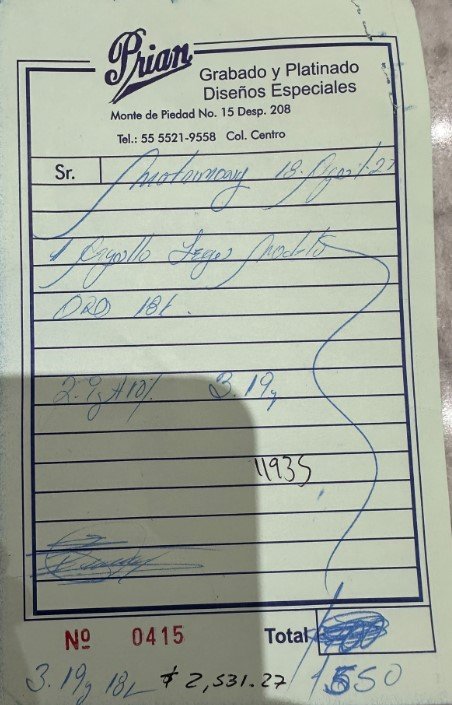 Prian
Grabado y Platinado
Diseños Especiales
Monte de Piedad No. 15 Desp. 208
Tel.: 55 5521-9558 Col. Centro
Sr. 18
1 Argolla
ORO 18k.
2.9g + 10% 3.19g
11935
Nº 0415 Total
3.19g 18k $ 2,531.27 1550